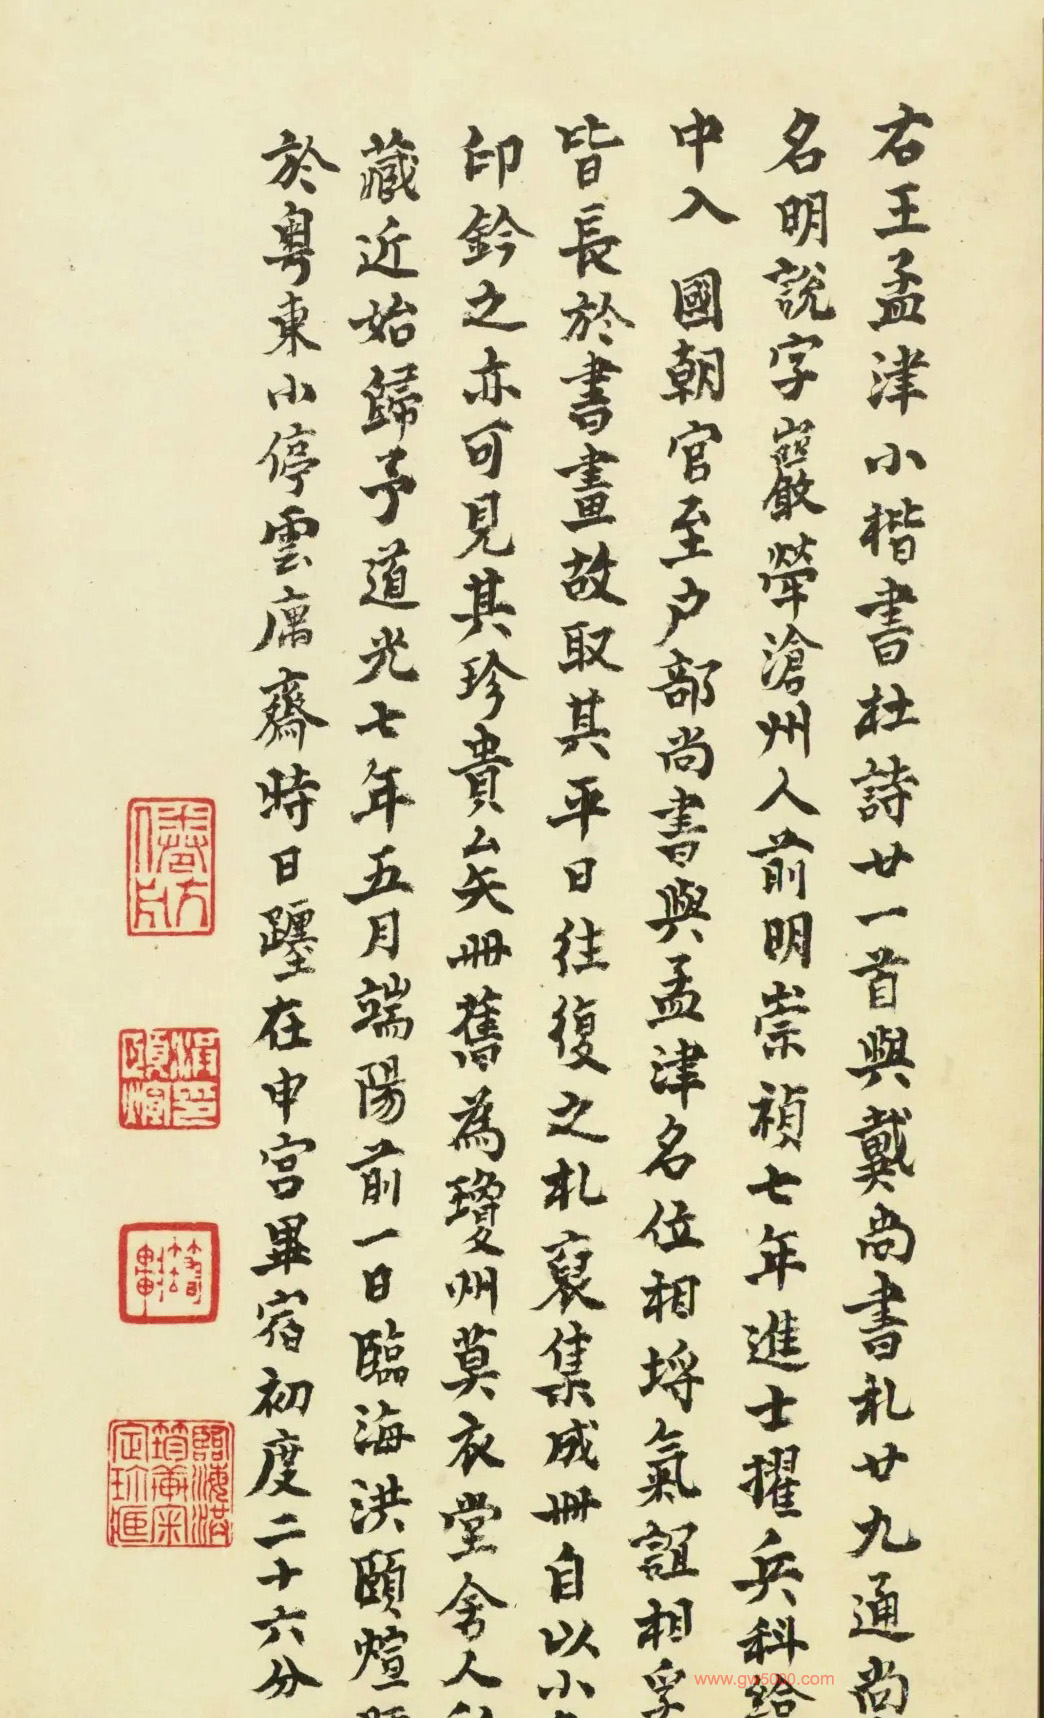 右王孟津小楷書杜詩廿一首與戴尚書札廿九通尚
名明說字巖犖滄州人前明崇禎七年進士擢兵科給
中入國朝官至户部尚書與孟津名位相埒氣誼相孚
皆長於書畫故取其平日往復之札裒集成冊自以小
印鈐之亦可見其珍貴矣冊舊為瓊州莫衣堂舍人
藏近始歸予道光七年五月端陽前一日臨海洪頤煊
於粵東小停雲廎齋時日躔在申宮畢宿初度二十六分
洪頤煊印
筠軒
臨海洪筠軒宋定珍
www.gw5000.com